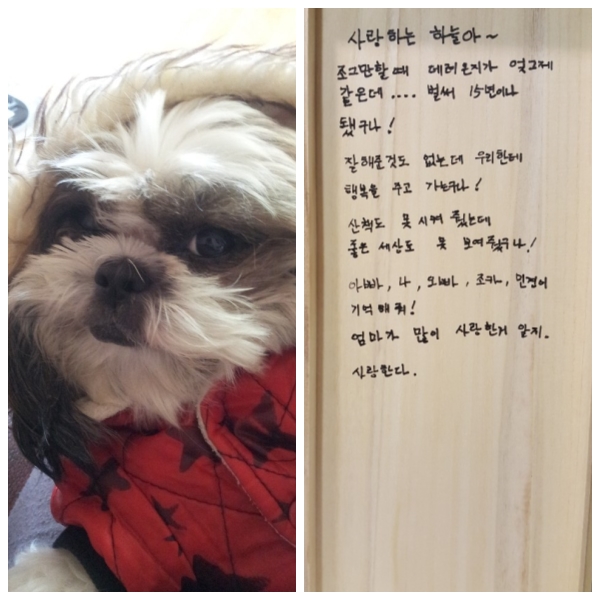 사랑하는 하늘아~
조그만할때 데려온지가 엊그제
같은데.... 벌써 15년이나
됐구나!
잘해준것도 없는데 우리한테
행복을 주고 가는구나!
산책도 못 시켜 줬는데
좋은 세상도 못 보여줬구나!
아빠, 나, 오빠, 조카, 민경이
기억해줘!
엄마가 많이 사랑한거 알지.
사랑한다.